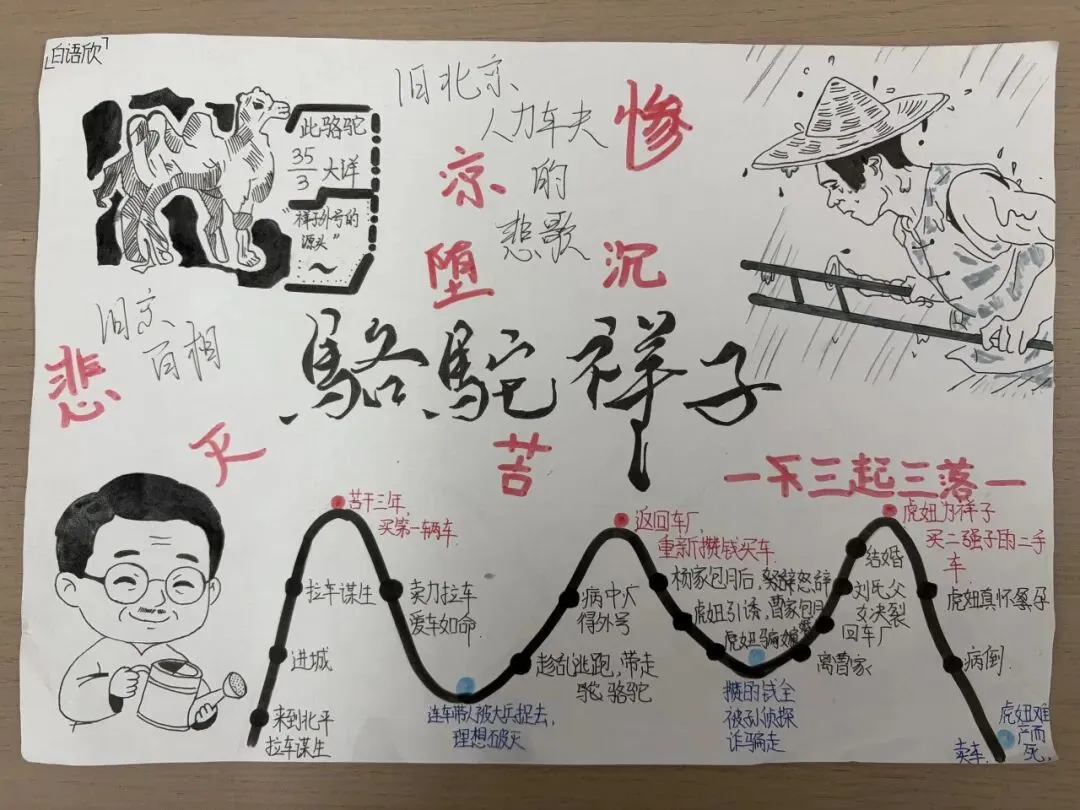 「白语欣」
此骆驼
35
3
大洋
"祥子外号的
源头"
旧北京
人力车夫
的
悲歌
惨
凉
堕
沉
旧京
百相
悲
灭
苦
駱駝祥子
三起三落
来到北平
拉车谋生
进城
拉车谋生
苦干三年,
买第一辆车
卖力拉车
爱车如命
连车带人被大兵捉去,
理想破灭
趁乱逃跑,带走
驼,骆驼
病中
得外号
返回车厂,
重新攒钱买车
杨家包月后,怒辞
虎妞引诱,曹家包月
虎妞骗婚
攒的钱全
被孙侦探
诈骗走
离曹家
回车厂
刘氏父
女决裂
结婚
虎妞为祥子
买二强子的二手
车
虎妞真怀孕
病倒
虎妞难
产而
死,
卖车